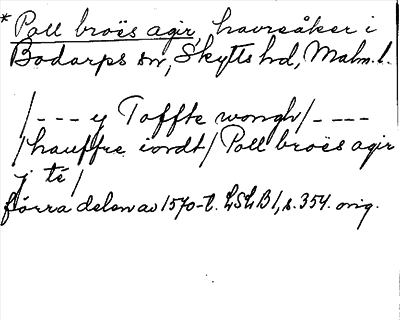 * Poll broës agir, havreåker i
Bodarps sn, Skytts hd, Malm.l.
/--- y Toffte wongh/----
/hauffre iordt/ Poll broës agir
j té/
förra delen av 1570-t. LSLB1, s. 354. orig.